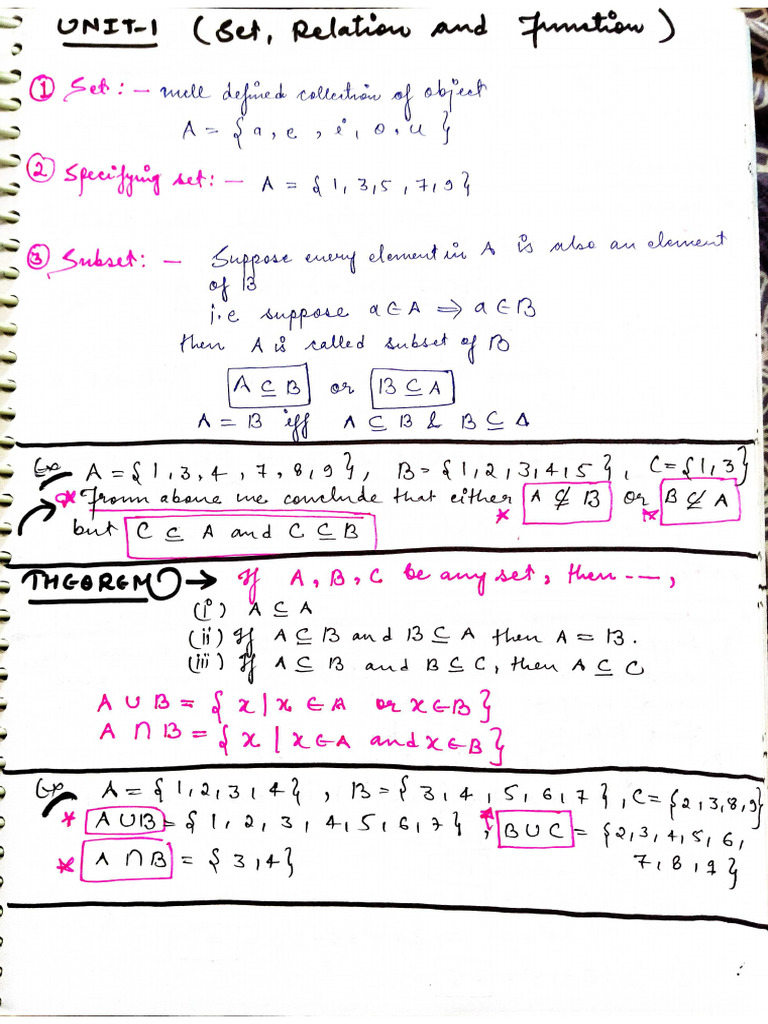 UNIT-1 (Set, Relation and Function)
① Set :- well defined collection of object
A = {a, e, i, o, u}
② Specifying set :- A = {1, 3, 5, 7, 9}
③ Subset :- Suppose every element in A is also an element
of B
i.e suppose a ∈ A ⇒ a ∈ B
then A is called subset of B
A ⊆ B or B ⊆ A
A = B iff A ⊆ B & B ⊆ A
Ex A = {1, 3, 4, 7, 8, 9}, B = {1, 2, 3, 4, 5}, C = {1, 3}
* From above we conclude that either A ⊈ B or B ⊈ A
but C ⊆ A and C ⊆ B
THEOREM → If A, B, C be any set, then ---,
(i) A ⊆ A
(ii) If A ⊆ B and B ⊆ A then A = B.
(iii) If A ⊆ B and B ⊆ C, then A ⊆ C
A ∪ B = {x | x ∈ A or x ∈ B}
A ∩ B = {x | x ∈ A and x ∈ B}
Ex A = {1, 2, 3, 4}, B = {3, 4, 5, 6, 7}, C = {2, 3, 8, 9}
* A ∪ B = {1, 2, 3, 4, 5, 6, 7}, * B ∪ C = {2, 3, 4, 5, 6,
7, 8, 9}
* A ∩ B = {3, 4}